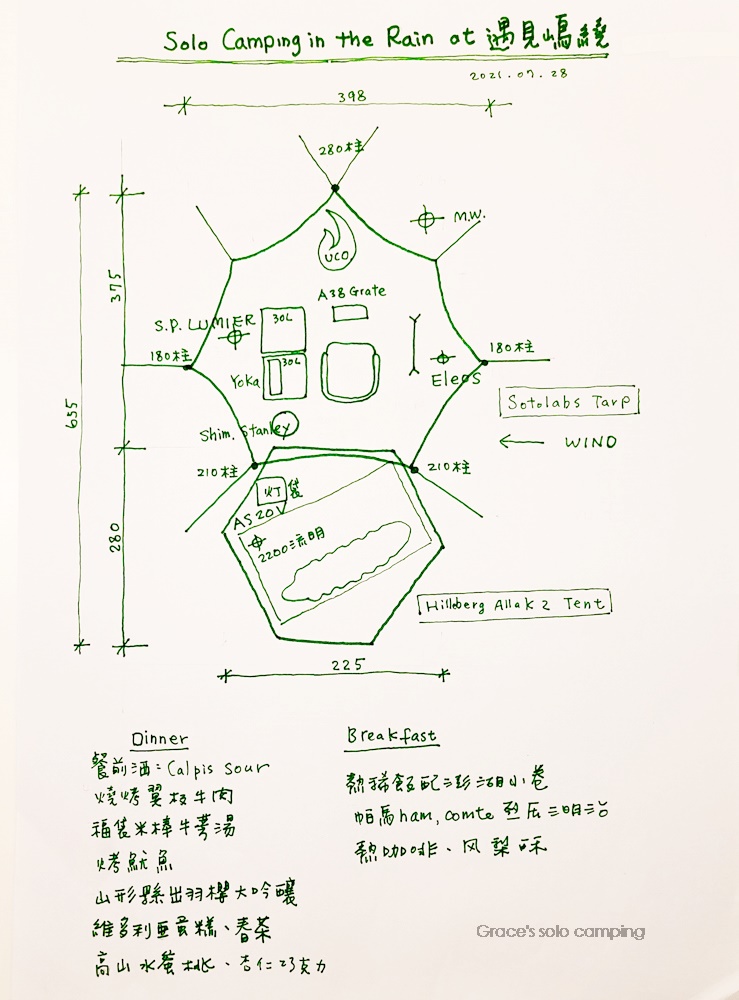 Solo Camping in the Rain at 遇見嶋嶢
2021.07.28
398
280柱
M.W.
UCO
375
A38 Grate
S.P. LUMIER
30L
180柱
180柱
30L
Yoka
Eleos
655
Sotolabs Tarp
Shim. Stanley
WIND
210柱
210柱
灯袋
AS20V
280
2200流明
Hilleberg Allak 2 Tent
225
Dinner
餐前酒：Calpis Sour
燒烤翼板牛肉
福袋米棒牛蒡湯
烤魷魚
山形縣出羽櫻大吟釀
維多利亞蛋糕、春茶
高山水蜜桃、杏仁巧克力
Breakfast
熱稀飯配澎湖小卷
帕馬ham, comte 烈压三明治
熱咖啡、凤梨酥
Grace's solo camping